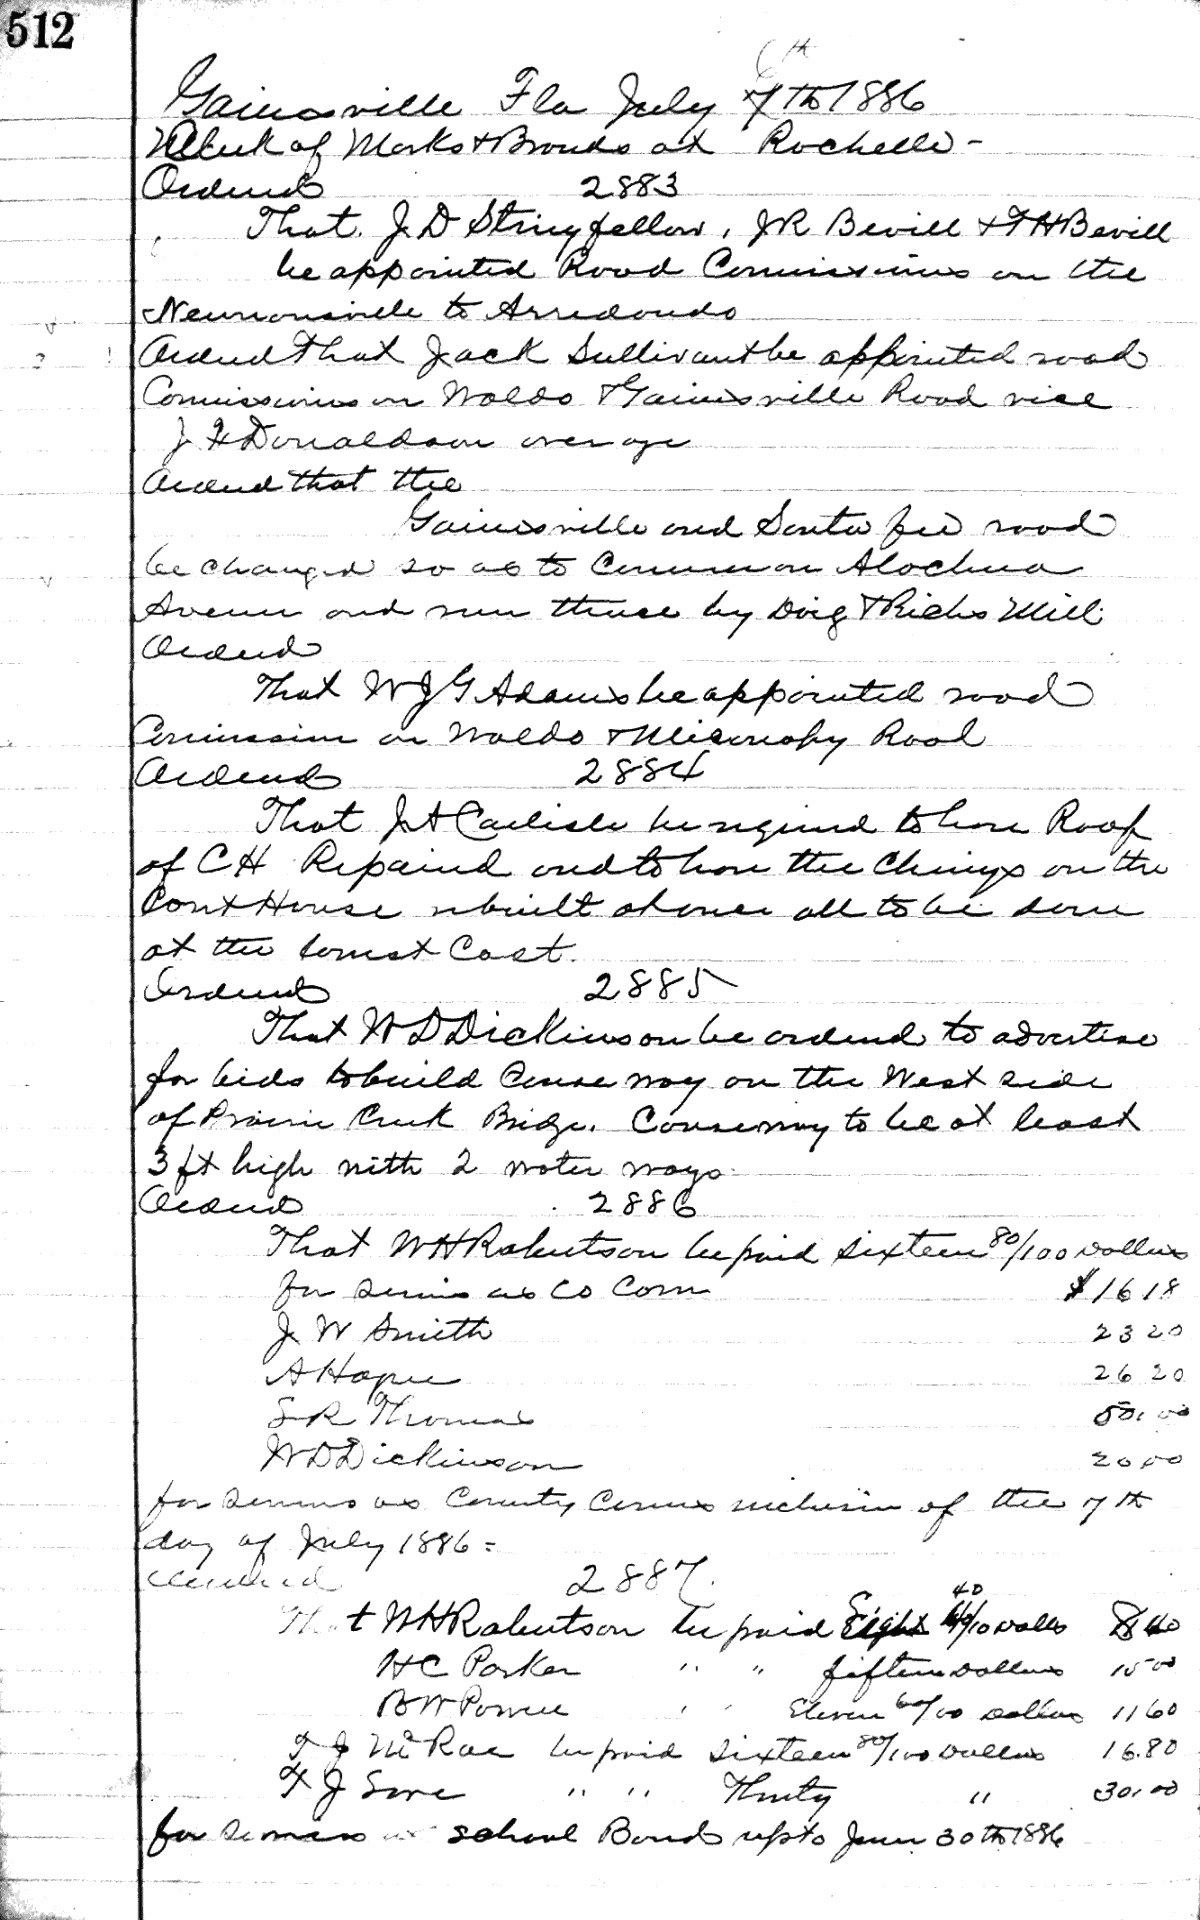 512
6th
Gainesville Fla July 7th 1886
Clerk of Marks & Brands at Rochelle -
Ordered 2883
That J D Stringfellow, J R Bevill & F H Bevill
be appointed Road Comissioners on the
Newnansville to Arredondo
Ordered that Jack Sullivant be appointed road
Comissioners on Waldo & Gainesville Road vice
J F Donaldson over age
Ordered that the
Gainesville and Santa fee road
be changed so as to Comme on Alachua
Avenue and run thence by Doig & Richs Mill.
Ordered
That W J G Adams be appointed road
Comission on Waldo & Micanopy Road
Ordered 2884
That J A Carlisle be required to have Roof
of C H Repaired and to have the Chimys on the
Court House rebuilt at once all to be done
at the lowest Cost.
Ordered 2885
That W D Dickinson be ordered to advertise
for bids to build Cause way on the West side
of Prairie Creek Bridge. Causeway to be at least
3 ft high with 2 water ways.
Ordered 2886
That W H Robertson be paid Sixteen 80/100 Dollars
for servis as Co Com $16 18
J W Smith 23 20
A Hague 26 20
S R Thomas 50.00
W D Dickinson 20 00
for servis as County Comrs inclusive of the 7th
day of July 1886 =
Ordered 2887.
That W H Robertson be paid Eight 40/10 Dolls 8 40
H C Parker " " fifteen Dollars 15 00
B W Powell " " Eleven 60/00 Dollars 11 60
T J McRae be paid Sixteen 80/100 Dollars 16.80
F J " " Thirty " 30.00
for servises as school Board up to June 30th 1886